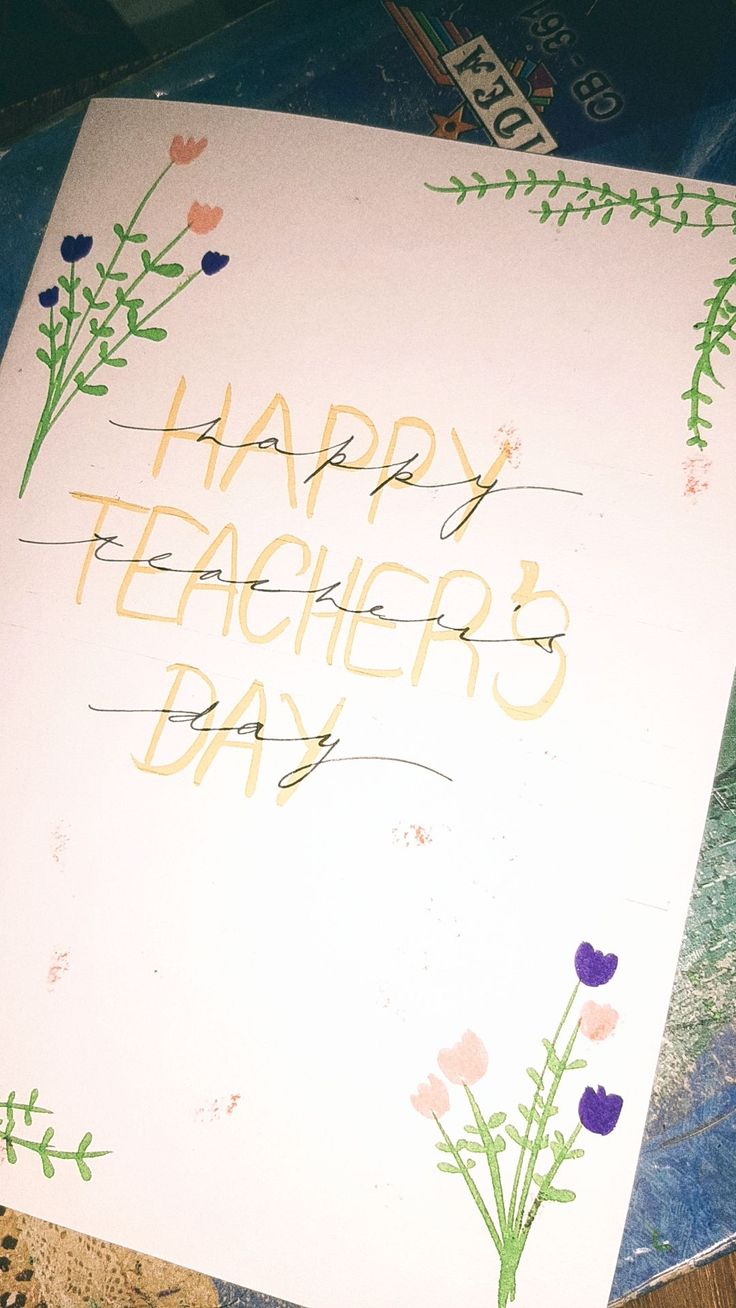 IDEA
CB-361
HAPPY
happy
TEACHER'S
teacher's
DAY
day